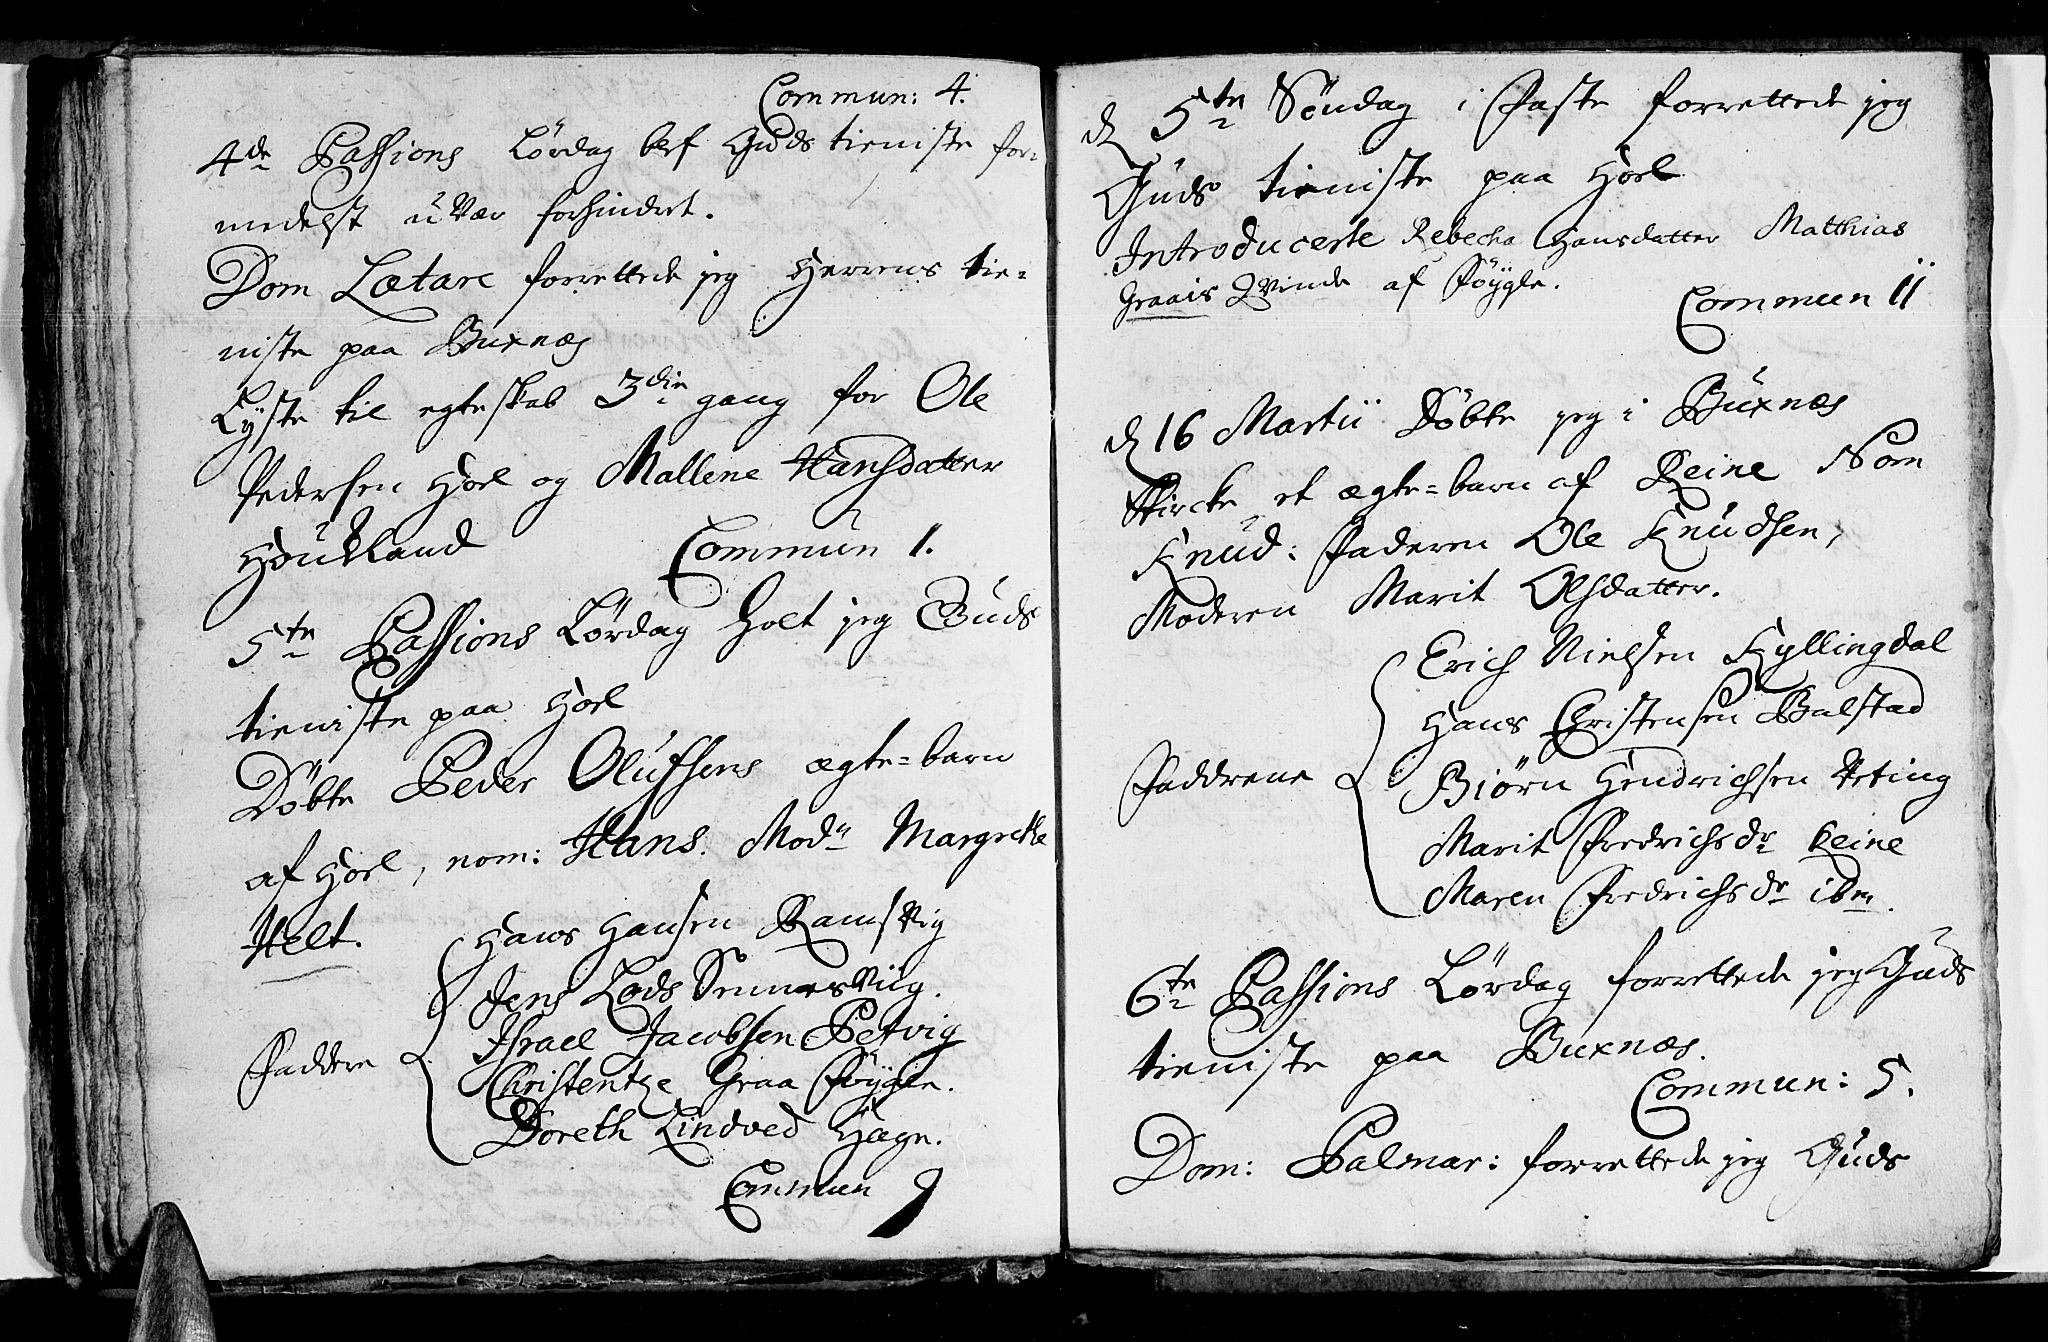 Commun: 4.
4de Passions Lørdag blef Guds tieniste for-
medelst uVær forhindret.
Dom Lætare forrettede jeg Herrens tie-
niste paa Buxnæs
Lyste til egteskab 3die gang for Ole
Pedersen Hoel og Mallene Hansdatter
Houkland Commun 1.
5te Passions Lørdag holt jeg Guds
tieniste paa Hoel
Døbte Peder Olufsens ægte-barn
af Hoel, nom: Hans. Modn Margrethe
Helt.
Hans Hansen RamsVig
Jens Lods SennesViig.
Israel Jacobsen Petvig
Faddere
Christentze Graa Føygle.
Doreth Lindved Hagn.
Commun 9
d 5te Søndag i Faste forrettede jeg
Guds tieniste paa Hoel
Introducerte Rebecha Hansdatter Matthias
Graais Qvinde af Føygle.
Commun 11
d 16 Martii Døbte jeg i Buxnæs
Kircke et ægte-barn af Reine Nom
Knud: Faderen Ole Knudsen,
Moderen Marit Olsdatter.
Erich Nielsen Kyllingdal
Hans Christensen Balstad
Faddrene
Biørn Hendrichsen Urting
Marit Fredrichsdr Reine
Maren Fredrichsdr ibm.
6te Passions Lørdag forrettede jeg Guds
tieniste paa Buxnæs.
Commun: 5.
Dom: Palmar: forrettede jeg Guds